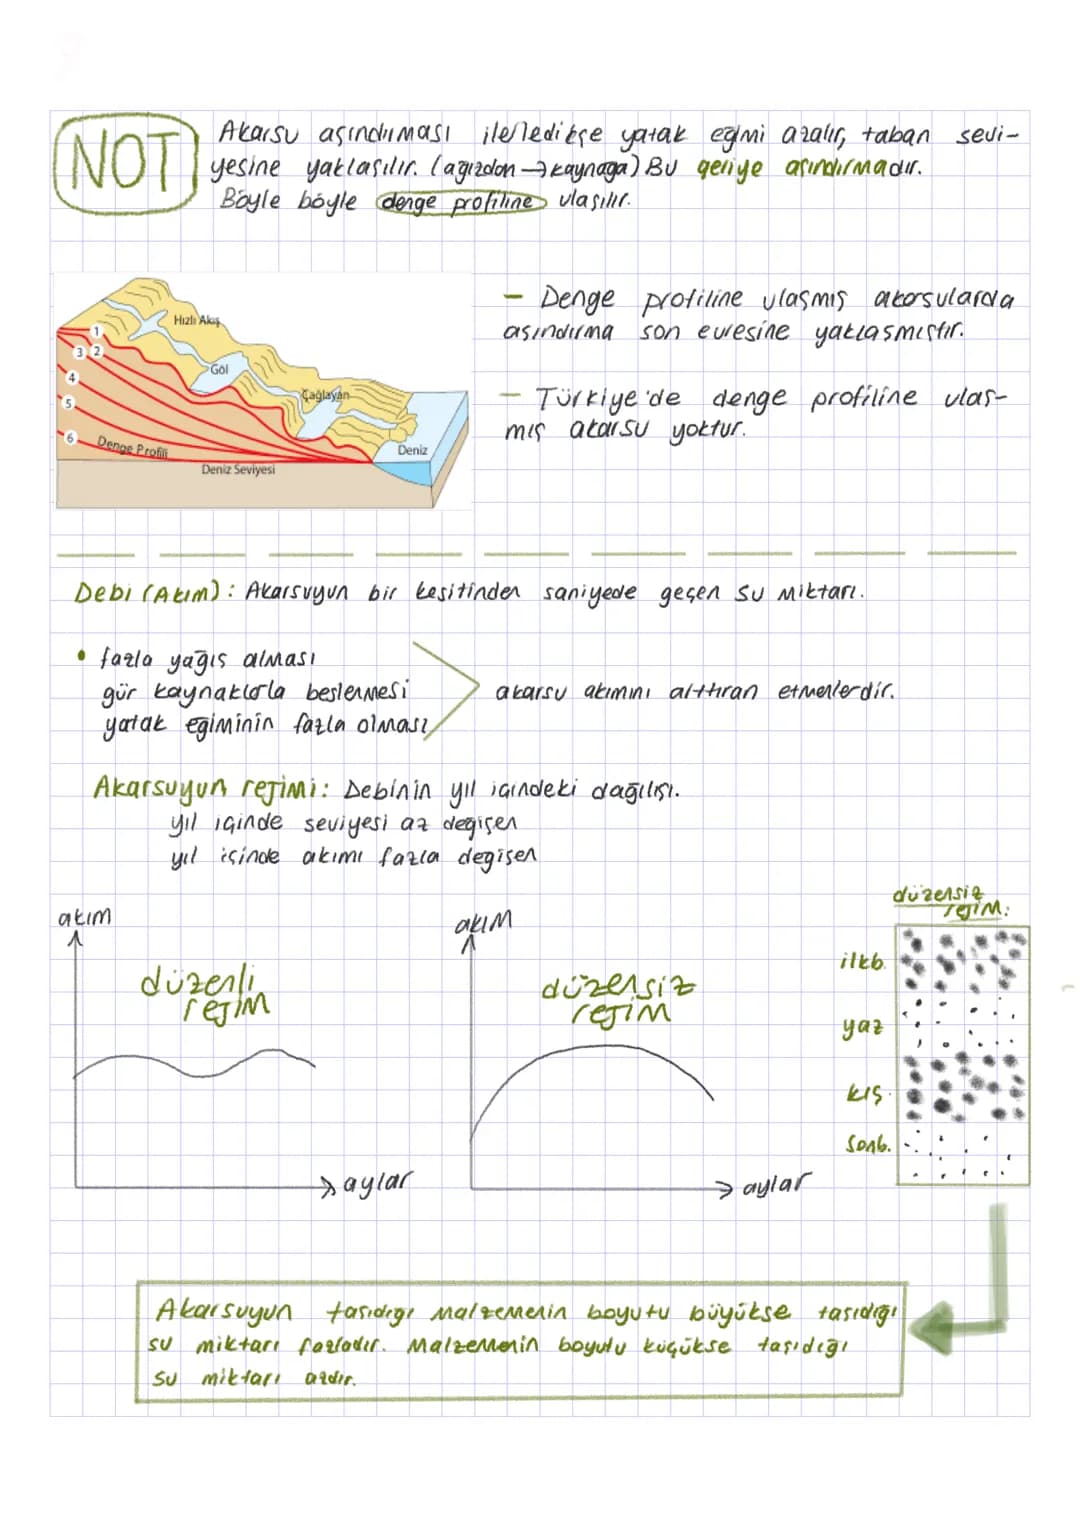 NOT
Akarsu aşındırması ilerledikçe yatak eğimi azalır, taban sevi-
yesine yaklaşılır. (ağızdan → kaynağa) Bu geriye aşındırmadır.
Böyle böyle denge profiline ulaşılır.
Hızlı Akış
Göl
Çağlayan
Deniz
1
3 2
4
5
6
Denge Profili
Deniz Seviyesi
- Denge profiline ulaşmış akarsularda
aşındırma son evresine yaklaşmıştır.
- Türkiye'de denge profiline ulaş-
mış akarsu yoktur.
Debi (Akım): Akarsuyun bir kesitinden saniyede geçen su miktarı.
• fazla yağış alması
gür kaynaklarla beslenmesi
yatak eğiminin fazla olması
akarsu akımını arttıran etmenlerdir.
Akarsuyun rejimi: Debinin yıl içindeki dağılışı.
yıl içinde seviyesi az değişen
yıl içinde akımı fazla değişen
akım
düzenli
rejim
aylar
akım
düzensiz
rejim
aylar
düzensiz
rejim:
ilkb.
yaz
kış
sonb.
Akarsuyun taşıdığı malzemenin boyutu büyükse taşıdığı
su miktarı fazladır. Malzemenin boyutu küçükse taşıdığı
su miktarı azdır.